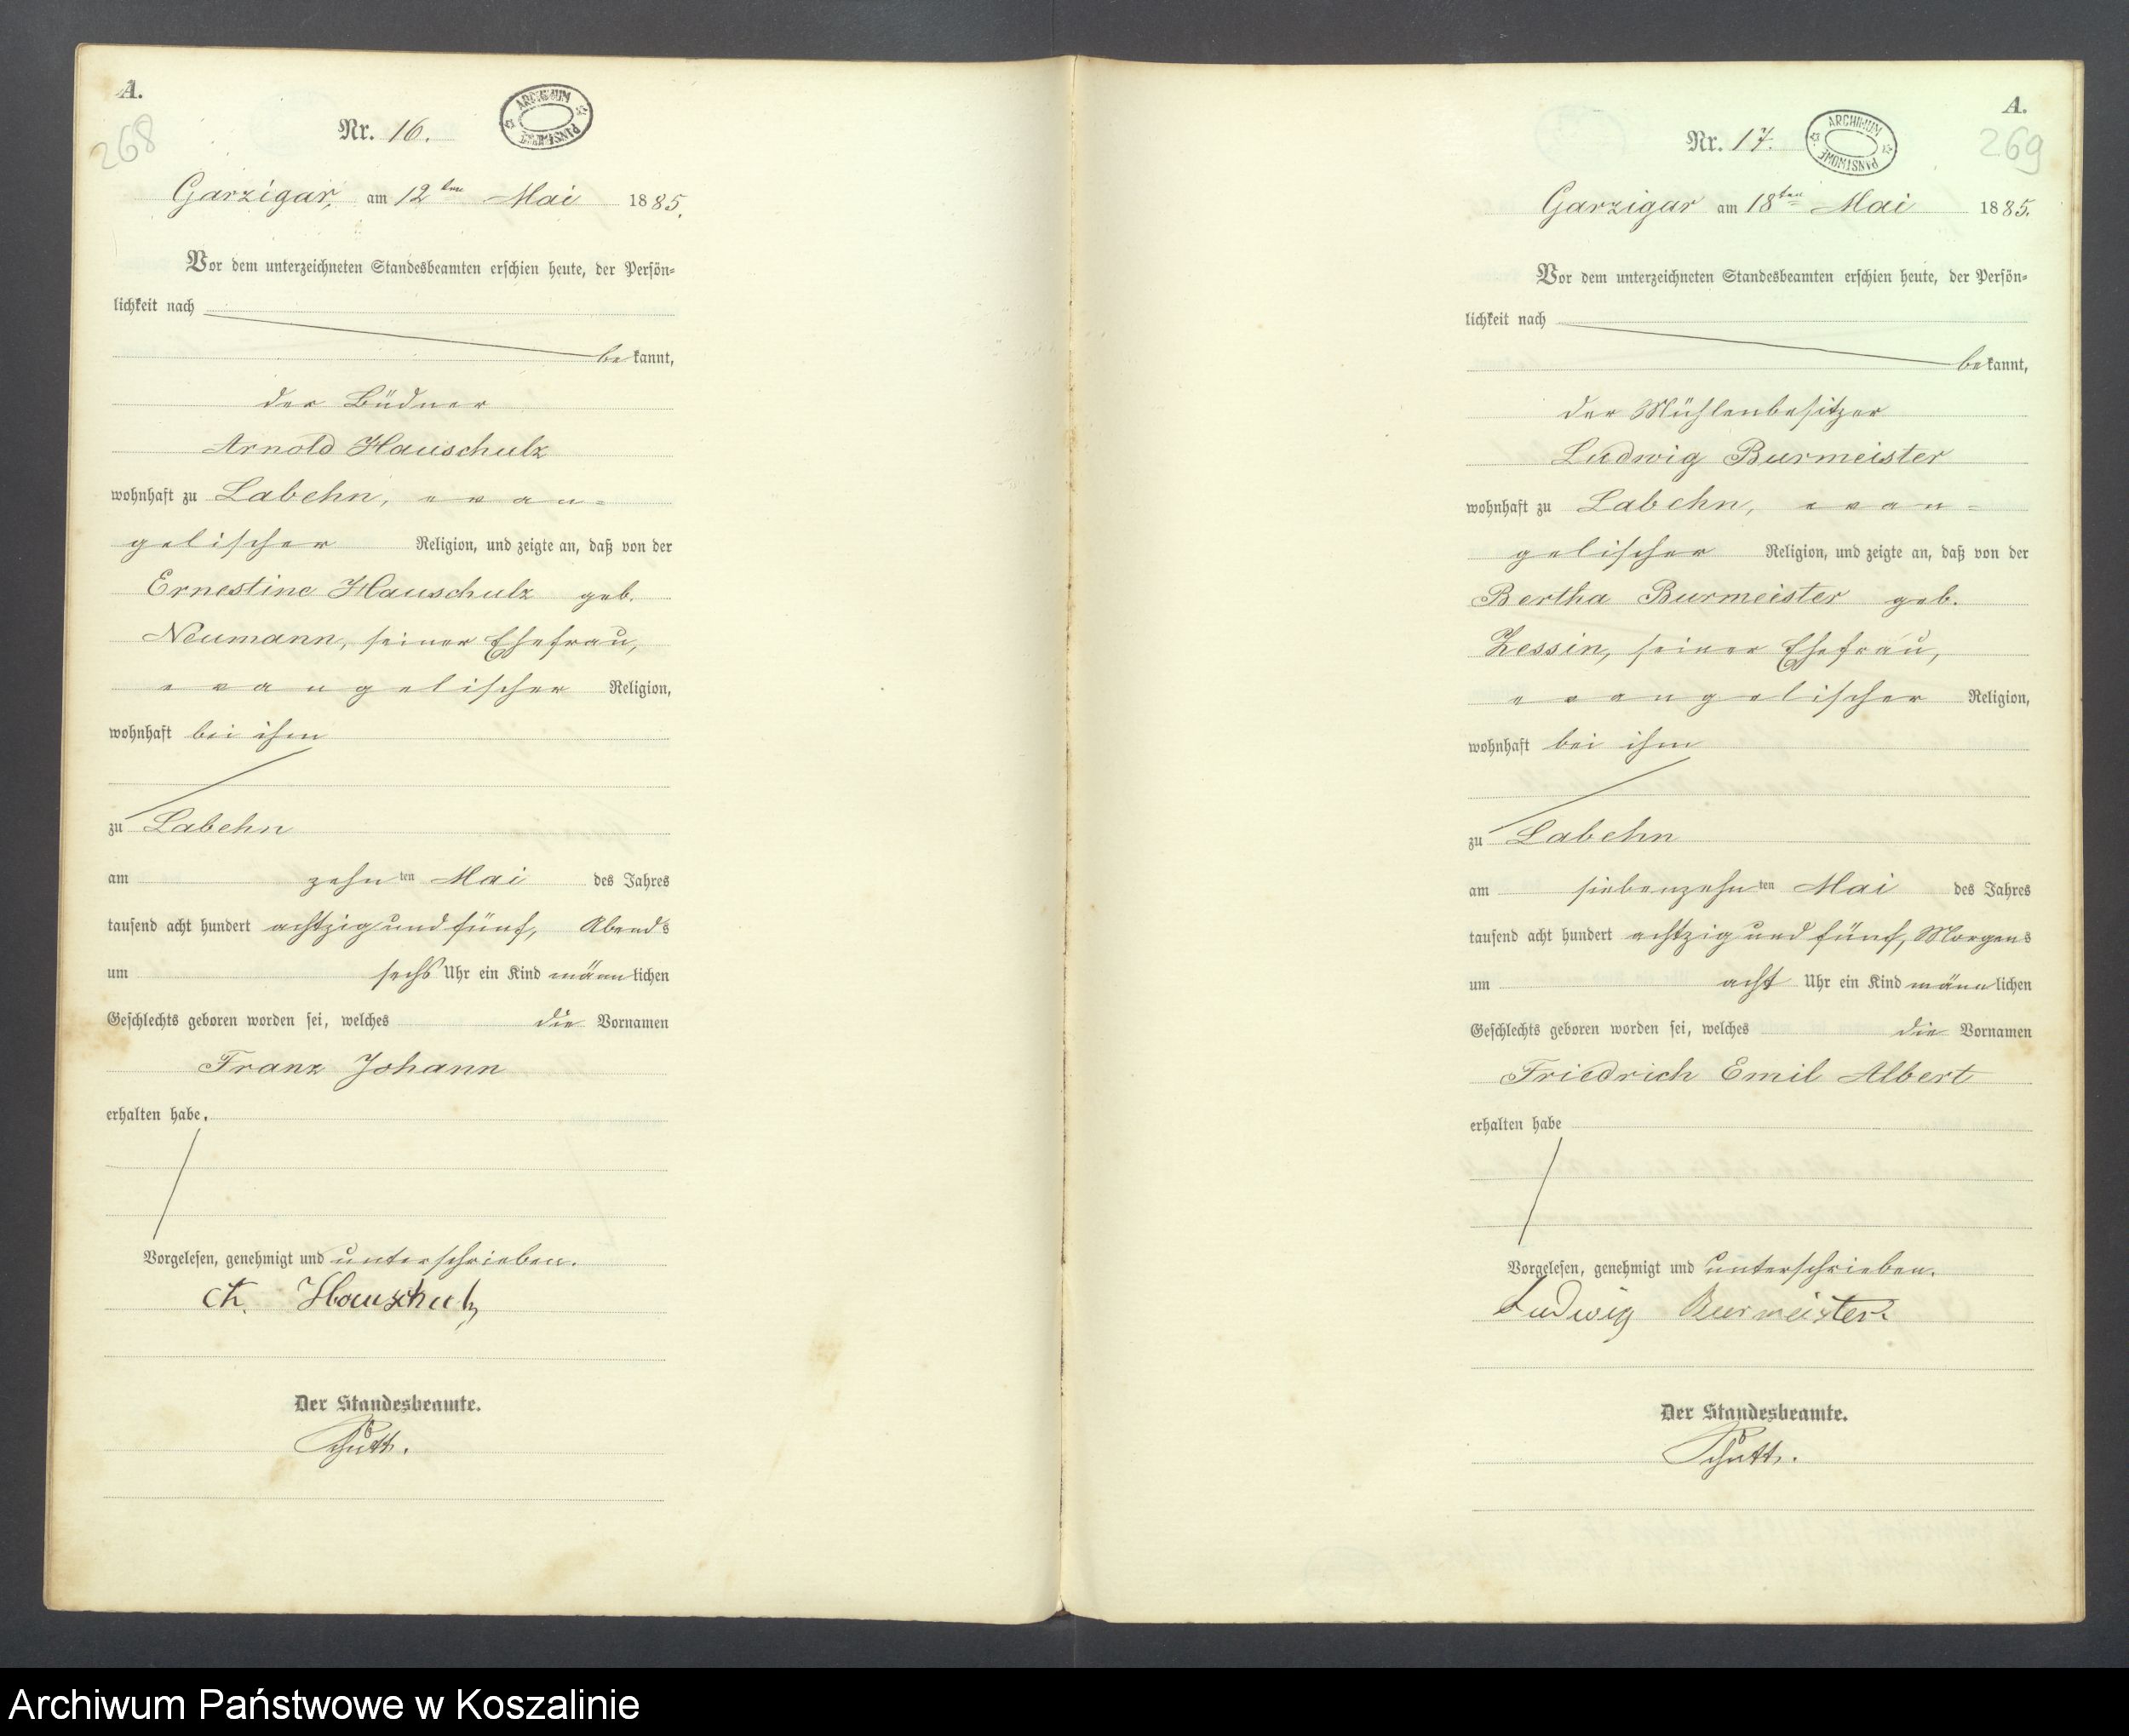 A.
268
Nr. 16.
ARCHIWUM PAŃSTWOWE
Garzigar, am 12ten Mai 1885.
Vor dem unterzeichneten Standesbeamten erschien heute, der Persön=
lichkeit nach
bekannt,
der Büdner
Arnold Hauschulz
wohnhaft zu Labehn, evan=
gelischer Religion, und zeigte an, daß von der
Ernestine Hauschulz geb.
Neumann, seiner Ehefrau,
evangelischer Religion,
wohnhaft bei ihm
zu Labehn
am zehnten Mai des Jahres
tausend acht hundert achtzig und fünf, Abends
um sechs Uhr ein Kind männlichen
Geschlechts geboren worden sei, welches die Vornamen
Franz Johann
erhalten habe.
Vorgelesen, genehmigt und unterschrieben.
A. Hauschulz
Der Standesbeamte.
A.
269
Nr. 17.
ARCHIWUM PAŃSTWOWE
Garzigar am 18ten Mai 1885.
Vor dem unterzeichneten Standesbeamten erschien heute, der Persön=
lichkeit nach
bekannt,
der Mühlenbesitzer
Ludwig Burmeister
wohnhaft zu Labehn, evan=
gelischer Religion, und zeigte an, daß von der
Bertha Burmeister geb.
Zessin, seiner Ehefrau,
evangelischer Religion,
wohnhaft bei ihm
zu Labehn
am siebenzehnten Mai des Jahres
tausend acht hundert achtzig und fünf, Morgens
um acht Uhr ein Kind männlichen
Geschlechts geboren worden sei, welches die Vornamen
Friedrich Emil Albert
erhalten habe
Vorgelesen, genehmigt und unterschrieben.
Ludwig Burmeister.
Der Standesbeamte.
Archiwum Państwowe w Koszalinie